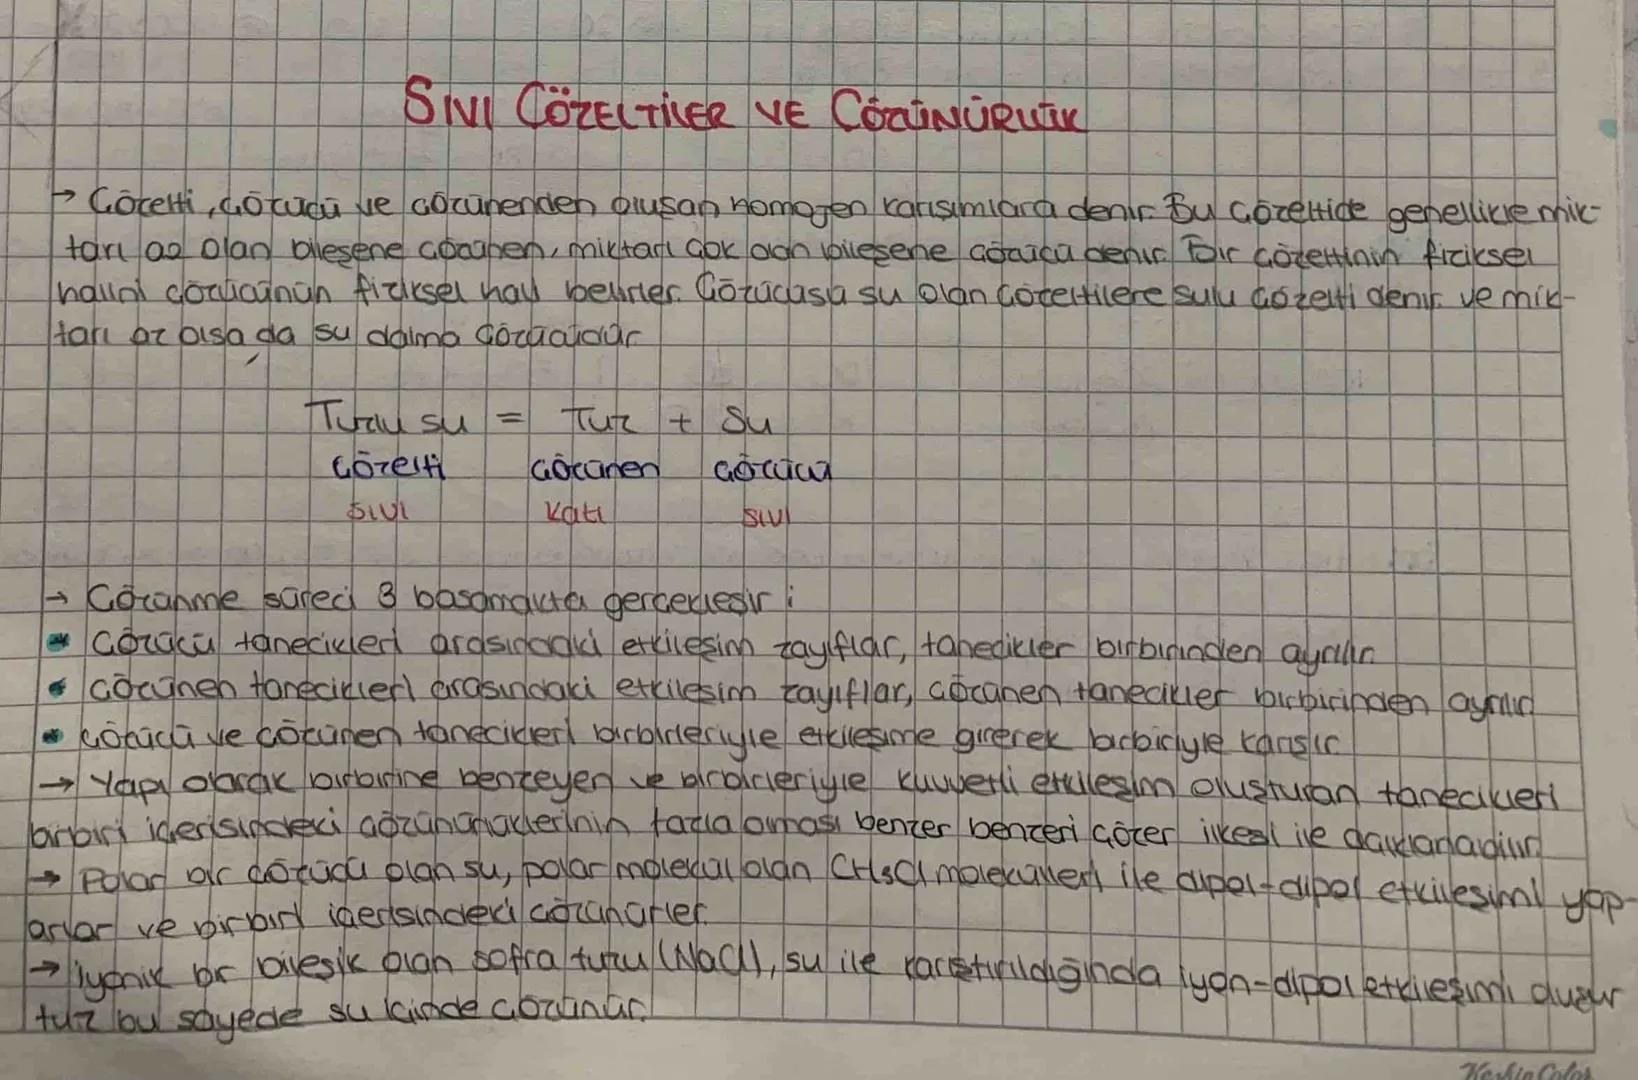 SIVI ÇÖZELTİLER VE ÇÖZÜNÜRLÜK
→ Çözelti, çözücü ve çözünenden oluşan homojen karışımlara denir. Bu çözeltide genellikle mik-
tarı az olan bileşene çözünen, miktarı çok olan bileşene çözücü denir. Bir çözeltinin fiziksel
halini çözücünün fiziksel hali belirler. Çözücüsü su olan çözeltilere sulu çözelti denir ve mik-
tarı az olsa da su daima çözücüdür
Tuzlu su = Tuz + Su
çözelti çözünen çözücü
sıvı katı sıvı
→ Çözünme süreci 3 basamakta gerçekleşir:
• Çözücü tanecikleri arasındaki etkileşim zayıflar, tanecikler birbirinden ayrılır.
• Çözünen tanecikleri arasındaki etkileşim zayıflar, çözünen tanecikler birbirinden ayrılır
• Çözücü ve çözünen tanecikleri birbirleriyle etkileşime girerek birbiriyle karışır.
→ Yapı olarak birbirine benzeyen ve birbirleriyle kuvvetli etkileşim oluşturan tanecikleri
birbiri içerisindeki çözünürlüklerinin fazla olması benzer benzeri çözer ilkesi ile
→ Polar bir çözücü olan su, polar molekül olan CH₃Cl molekülleri ile dipol-dipol etkileşimi yap-
arlar ve birbiri içerisindeki çözünürler.
→ İyonik bir bileşik olan sofra tuzu (NaCl), su ile karıştırıldığında iyon-dipol etkileşimi oluşur
tuz bu sayede su içinde çözünür.
Keskin Color